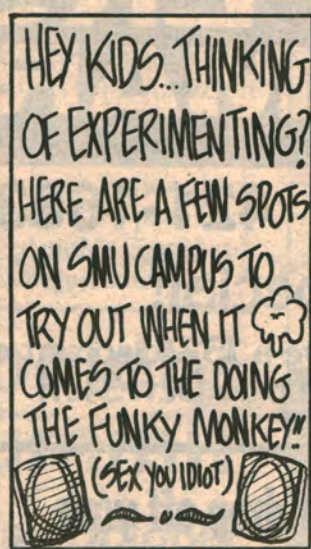 HEY KIDS...THINKING
OF EXPERIMENTING?
HERE ARE A FEW SPOTS
ON SMU CAMPUS TO
TRY OUT WHEN IT
COMES TO THE DOING
THE FUNKY MONKEY!!
(SEX YOU IDIOT)